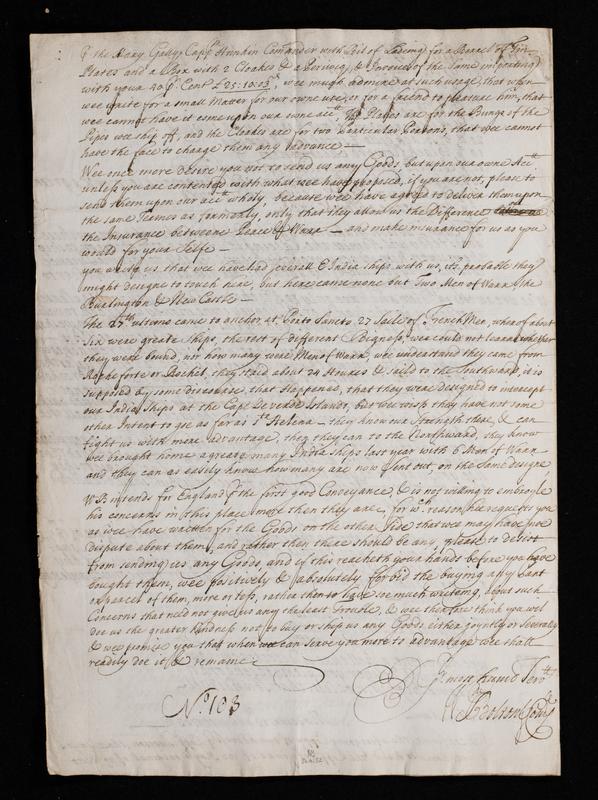 ꝑ the Mary Gally Capt Hinkin Comander with Bill of Lading for a Barrel of Tin
Plates and a Box with 2 Cloakes & a Perwigg, & Invoice of the Same importing
with your 40 ꝑ Cent £25:10:03, wee much admire at such usage, that when
wee write for a small Matter for our owne use, or for a friend to pleasure him, that
wee cannot have it come upon our owne acctt, The Plates are for the Bungs of the
Pipes wee ship off, and the Cloakes are for two particular Persons, that wee cannot
have the face to charge them any advance —
Wee once more desire you not to send us any Goods, but upon our owne Acctt
unless you are contented with what wee have proposed, if you are not, please to
send them upon our acctt wholy, because wee have agreed to deliver them upon
the same Tearmes as formerly, only that they allow us the Difference
the Insurance betweene Peace & Warr — and make insurance for us as you
would for your Selfe —
you write us that we have had severall E India ships with us, its probable they
might designe to touch here, but here came none but Two Men of Warr, the
Burlington & New Castle —
The 27th ultimo came to anchor at Porto Santo 27 Saile of French Men, whereof about
Six were greate Ships, the rest of different Bigness, wee could not learne whether
they were bound, nor how many were Men of Warr, wee understand they came from
Rochforte or Rochel, they staid about 24 Houres & saild to the Southward, it is
supposed by some discourse, that Happened, that they were designed to intercept
our India Ships at the Cape deVerde Islands, but wee wish they have not some
other Intent to goe as far as St Helena — they know our Strength there, & can
fight us with more advantage, then they can to the Northward, they know
wee brought home a greate many India Ships last year with 6 Men of Warr
and they can as easily know how many are now sent out, on the Same designe
WB: intends for England ꝑ the first good Conveyance, & is not willing to embroyle
his concerns in this place more then they are, for wch reason hee requests you
as wee have written for the Goods on the other Side that wee may have noe
dispute about them, and rather then there should be any, please to desist
from sending us any Goods, and if this reacheth your hands before you have
bought them, wee positively & absolutely forbid the buying any part
or parcel of them, more or less, rather then to have soe much writeing about such
Concerns that need not give us any the least Trouble, & wee therefore think you wil
doe us the greater kindness not to buy or ship us any Goods either joyntly or Severaly
& wee promise you that when wee can serve you more to advantage wee shall
readily doe it, & remaine
Yr most humb Servts
W Bolton
No 103